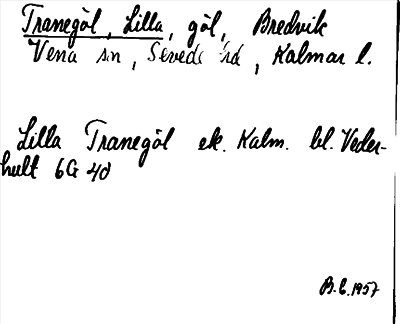 Tranegöl, Lilla, göl, Bredvik
Vena sn, Sevede hd, Kalmar l.
Lilla Tranegöl ek. Kalm. bl. Veder-
hult 6G 4d
B.E. 1957